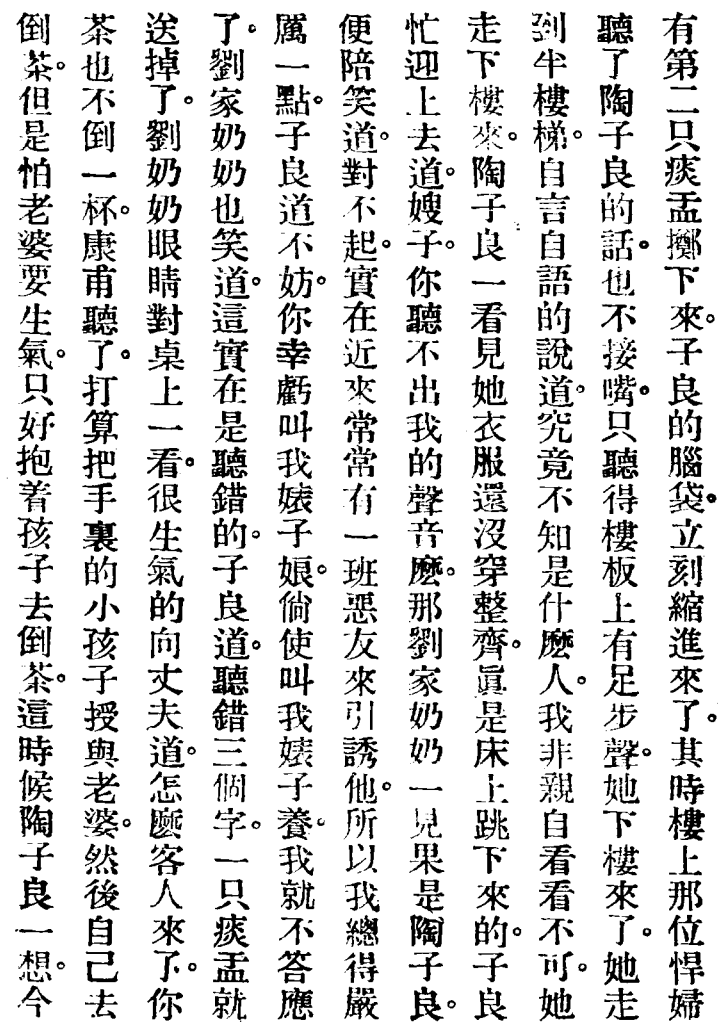 有第二只痰盂擲下來。子良的腦袋。立刻縮進來了。其時樓上那位悍婦
聽了陶子良的話。也不接嘴。只聽得樓板上有足步聲。她下樓來了。她走
到半樓梯。自言自語的說道。究竟不知是什麽人。我非親自看看不可。她
走下樓來。陶子良一看見她衣服還沒穿整齊。眞是床上跳下來的。子良
忙迎上去道。嫂子。你聽不出我的聲音麽。那劉家奶奶一見果是陶子良。
便陪笑道。對不起。實在近來常常有一班惡友來引誘他。所以我總得嚴
厲一點。子良道不妨。你幸虧叫我婊子娘。倘使叫我婊子養。我就不答應
了。劉家奶奶也笑道。這實在是聽錯的。子良道。聽錯三個字。一只痰盂就
送掉了。劉奶奶眼睛對桌上一看。很生氣的向丈夫道。怎麽客人來了。你
茶也不倒一杯。康甫聽了。打算把手裏的小孩子授與老婆。然後自己去
倒茶。但是怕老婆要生氣。只好抱着孩子去倒茶。這時候陶子良一想。今